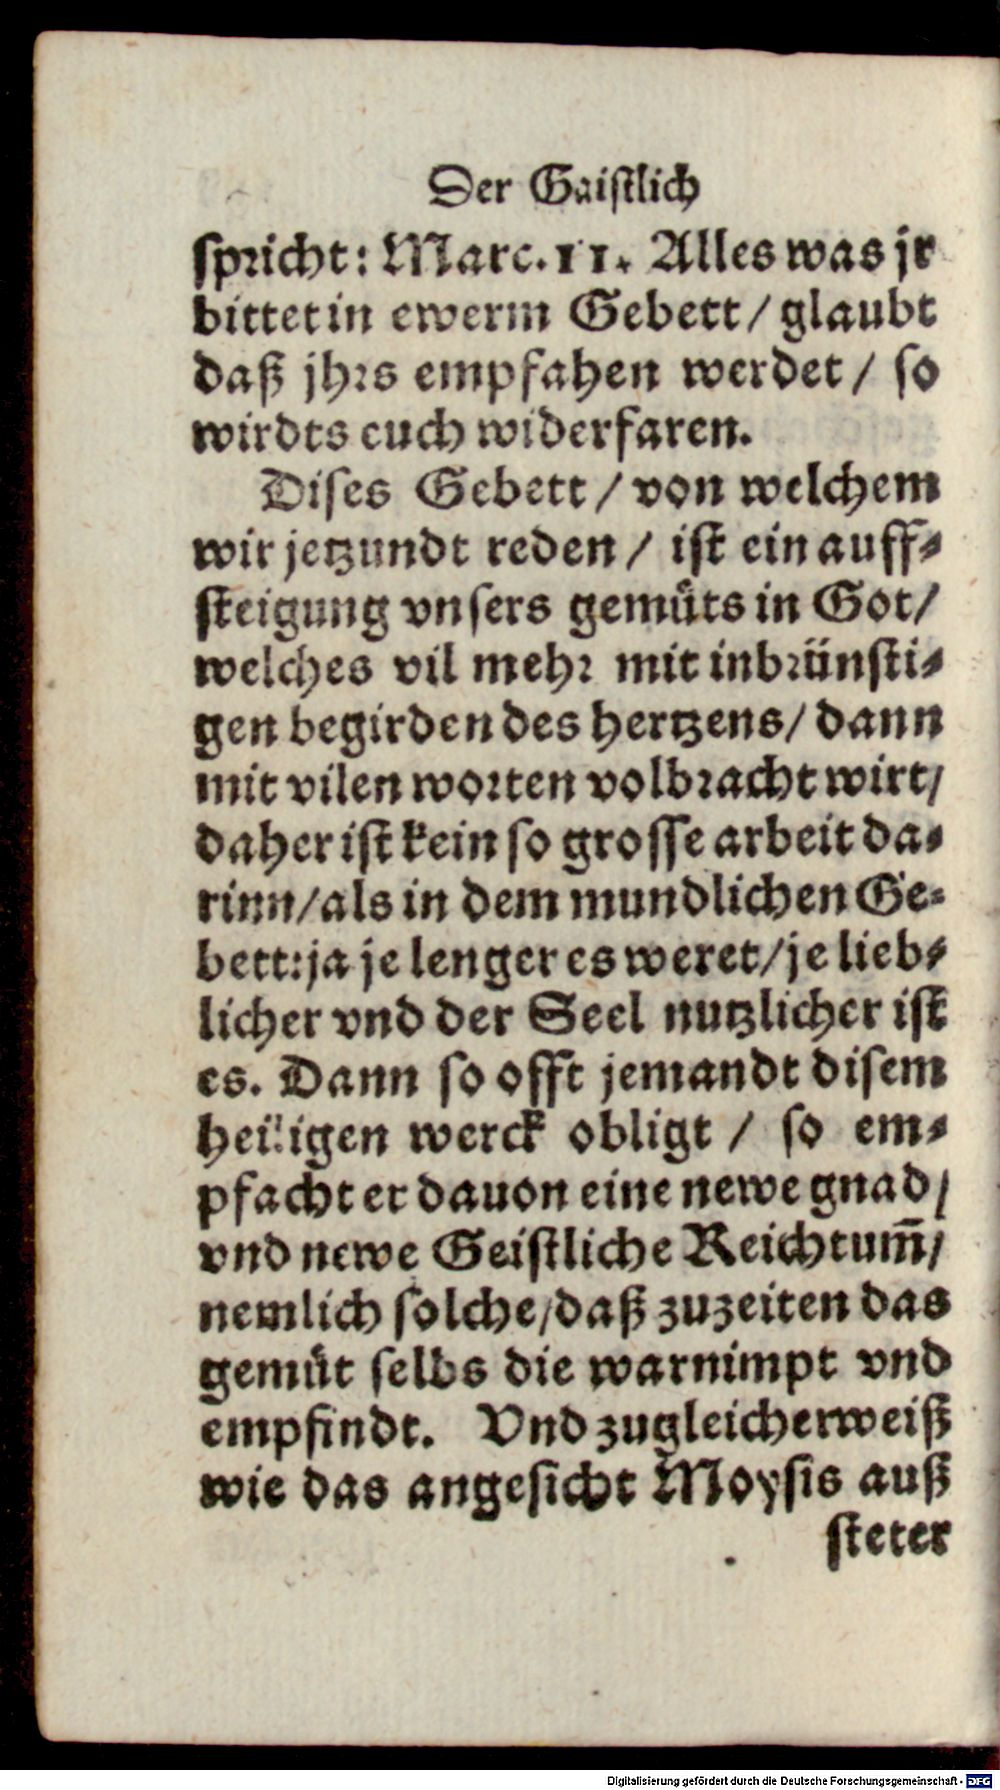 Der Gaistlich
spricht: Marc. 11. Alles was jr
bittet in ewerm Gebett / glaubt
daß jhrs empfahen werdet / so
wirdts euch widerfaren.
Dises Gebett / von welchem
wir jetzundt reden / ist ein auff-
steigung vnsers gemüts in Got /
welches vil mehr mit inbrünsti-
gen begirden des hertzens / dann
mit vilen worten volbracht wirt /
daher ist kein so grosse arbeit da-
rinn / als in dem mundlichen Ge-
bett: ja je lenger es weret / je lieb-
licher vnd der Seel nutzlicher ist
es. Dann so offt jemandt disem
heiligen werck obligt / so em-
pfacht er dauon eine newe gnad /
vnd newe Geistliche Reichtum̃ /
nemlich solche / daß zuzeiten das
gemüt selbs die warnimpt vnd
empfindt. Vnd zugleicherweiß
wie das angesicht Moysis auß
steter
Digitalisierung gefördert durch die Deutsche Forschungsgemeinschaft - DFG